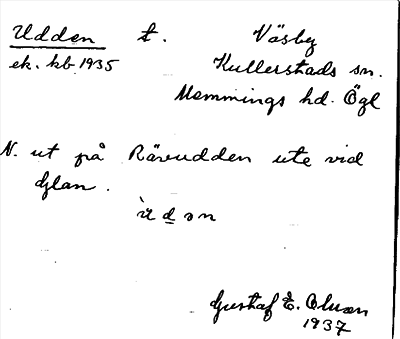 Udden t. Väsby
ek. kb. 1935 Kullerstads sn.
Memmings hd. Ögl
N. ut på Rävudden ute vid
Glan.
Gustaf E. Olsson
1937